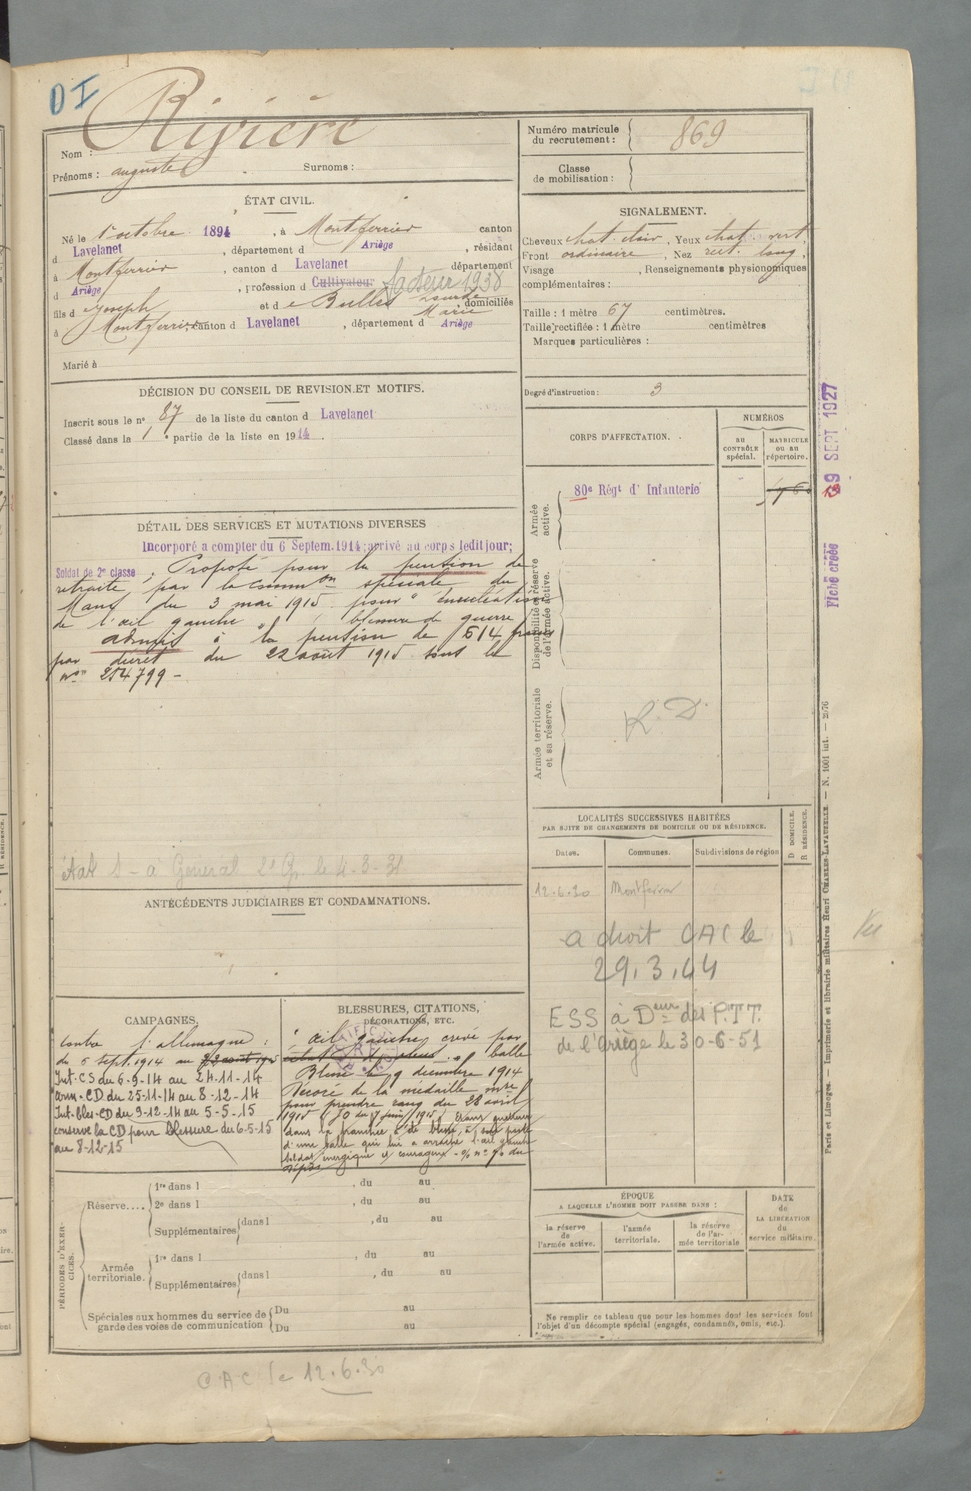 DI
Rivière
Nom :
Prénoms : auguste Surnoms :
Numéro matricule
du recrutement : 869
Classe
de mobilisation :
ÉTAT CIVIL.
Né le 1er octobre 1894, à Montferrier canton
d Lavelanet, département d Ariège, résidant
à Montferrier, canton d Lavelanet département
d Ariège, profession d Cultivateur facteur 1938
fils d e Joseph et d e Bulles Marie domiciliés
à Montferrier canton d Lavelanet, département d Ariège
Marié à
SIGNALEMENT.
Cheveux chat. clair, Yeux chat. vert,
Front ordinaire, Nez rect. long,
Visage , Renseignements physionomiques
complémentaires :
Taille : 1 mètre 67 centimètres.
Taille rectifiée : 1 mètre centimètres
Marques particulières :
Degré d'instruction : 3
DÉCISION DU CONSEIL DE REVISION ET MOTIFS.
Inscrit sous le n° 87 de la liste du canton d Lavelanet
Classé dans la 1e partie de la liste en 1914.
CORPS D'AFFECTATION.
NUMÉROS
au
CONTRÔLE
spécial.
MATRICULE
ou au
répertoire.
Armée
active.
80e Régt d' Infanterie
Disponibilité et réserve
de l'armée active.
Armée territoriale
et sa réserve.
R. D.
9 SEPT 1927
Fiche créée
DÉTAIL DES SERVICES ET MUTATIONS DIVERSES
Incorporé a compter du 6 Septem. 1914; arrivé au corps ledit jour;
Soldat de 2e classe ; Proposé pour la pension de
retraite par la common spéciale du
Mans du 3 mai 1915 pour "énucléation
de l'œil gauche" blessure de guerre
admis à la pension de 614 francs
par décret du 22 août 1915 sous le
no 214799 -
LOCALITÉS SUCCESSIVES HABITÉES
PAR SUITE DE CHANGEMENTS DE DOMICILE OU DE RÉSIDENCE.
D DOMICILE.
R RÉSIDENCE.
Dates.
Communes.
Subdivisions de région
12.6.30 Montferrier
a droit CAC le
29.3.44
ESS à Deur des P.T.T.
de l'Ariège le 30-6-51
le 4-3-38
ANTÉCÉDENTS JUDICIAIRES ET CONDAMNATIONS.
CAMPAGNES.
Contre l'allemagne :
du 6 sept. 1914 au 22 août 1915
Int-CS du 6-9-14 au 24-11-14
arm-CD du 25-11-14 au 8-12-14
Int-bles-CD du 9-12-14 au 5-5-15
conserve la CD pour blessure du 6-5-15
au 8-12-15
BLESSURES, CITATIONS,
DÉCORATIONS, ETC.
œil gauche crevé par
balle
Blessé le 9 décembre 1914
Décoré de la médaille mre
pour prendre rang du 28 avril
1915
dans la tranchée a été blessé, à son poste
d'une balle qui lui a arraché l'œil gauche
soldat énergique et courageux
PÉRIODES D'EXERCICES.
Réserve....
1re dans l , du au
2e dans l , du au
Supplémentaires dans l , du au
Armée
territoriale.
1re dans l , du au
Supplémentaires dans l , du au
Spéciales aux hommes du service de
garde des voies de communication
Du au
Du au
ÉPOQUE
A LAQUELLE L'HOMME DOIT PASSER DANS :
la réserve
de
l'armée active.
l'armée
territoriale.
la réserve
de l'ar-
mée territoriale
DATE
de
LA LIBÉRATION
du
service militaire.
Ne remplir ce tableau que pour les hommes dont les services font
l'objet d'un décompte spécial (engagés, condamnés, omis, etc.).
Paris et Limoges. — Imprimerie et librairie militaires Henri CHARLES-LAVAUZELLE. — N. 1001 int. — 2/76
C.A.C. le 12.6.30